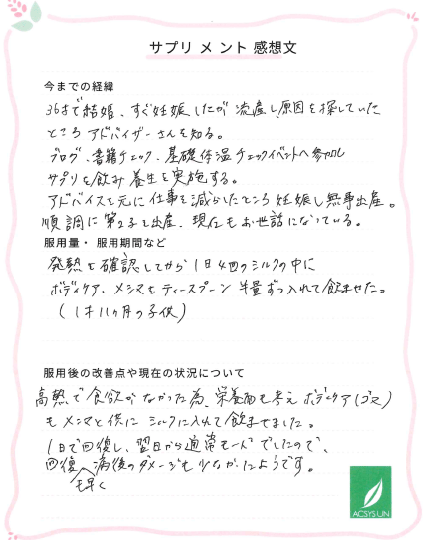 サプリメント感想文
今までの経緯
36才で結婚、すぐ妊娠したが流産し原因を探していた
ところアドバイザーさんを知る。
ブログ、書籍チェック、基礎体温チェックイベントへ参加し
サプリを飲み養生を実施する。
アドバイスを元に仕事を減らしたところ妊娠し無事出産。
順調に第2子も出産、現在もお世話になっている。
服用量・服用期間など
発熱を確認してから1日4回のミルクの中に
ボディケア、メシマをティースプーン半量ずつ入れて飲ませた。
(1才11ヶ月の子供)
服用後の改善点や現在の状況について
高熱で食欲がなかった為、栄養面も考えボディケア(ゴマ)
もメシマと供にミルクに入れて飲ませました。
1日で回復し、翌日から通常モードでしたので、
回復も早く病後のダメージも少なかったようです。
ACSYSUN